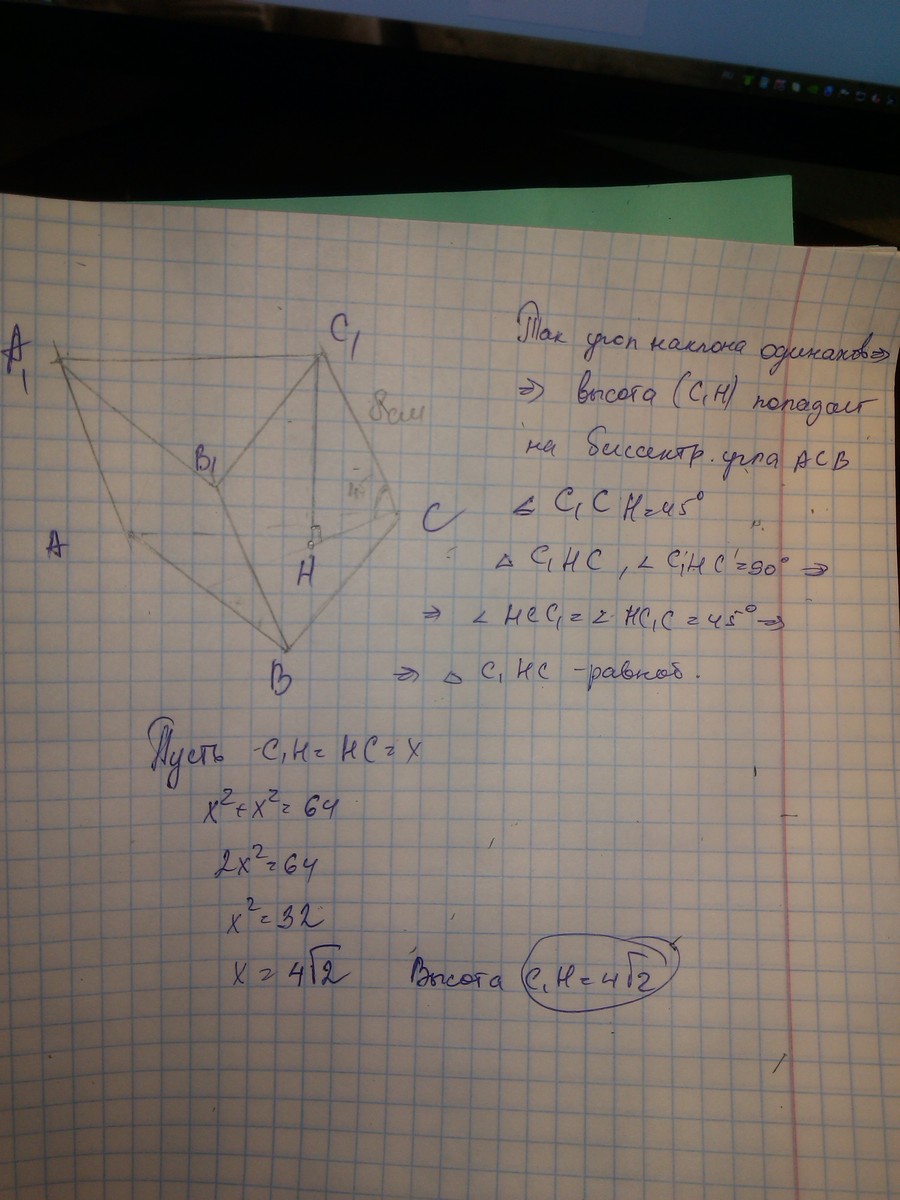 A₁
C₁
8см
B₁
45
A
C
H
B
Так угол наклона одинаков ⇒
⇒ высота (C₁H) попадает
на биссектр. угла ACB
∠ C₁CH=45°
△ C₁HC, ∠ C₁HC=90° ⇒
⇒ ∠ HCC₁ = ∠ HC₁C = 45° ⇒
⇒ △ C₁HC - равноб.
Пусть C₁H = HC = x
x² + x² = 64
2x² = 64
x² = 32
x = 4√2
Высота C₁H = 4√2